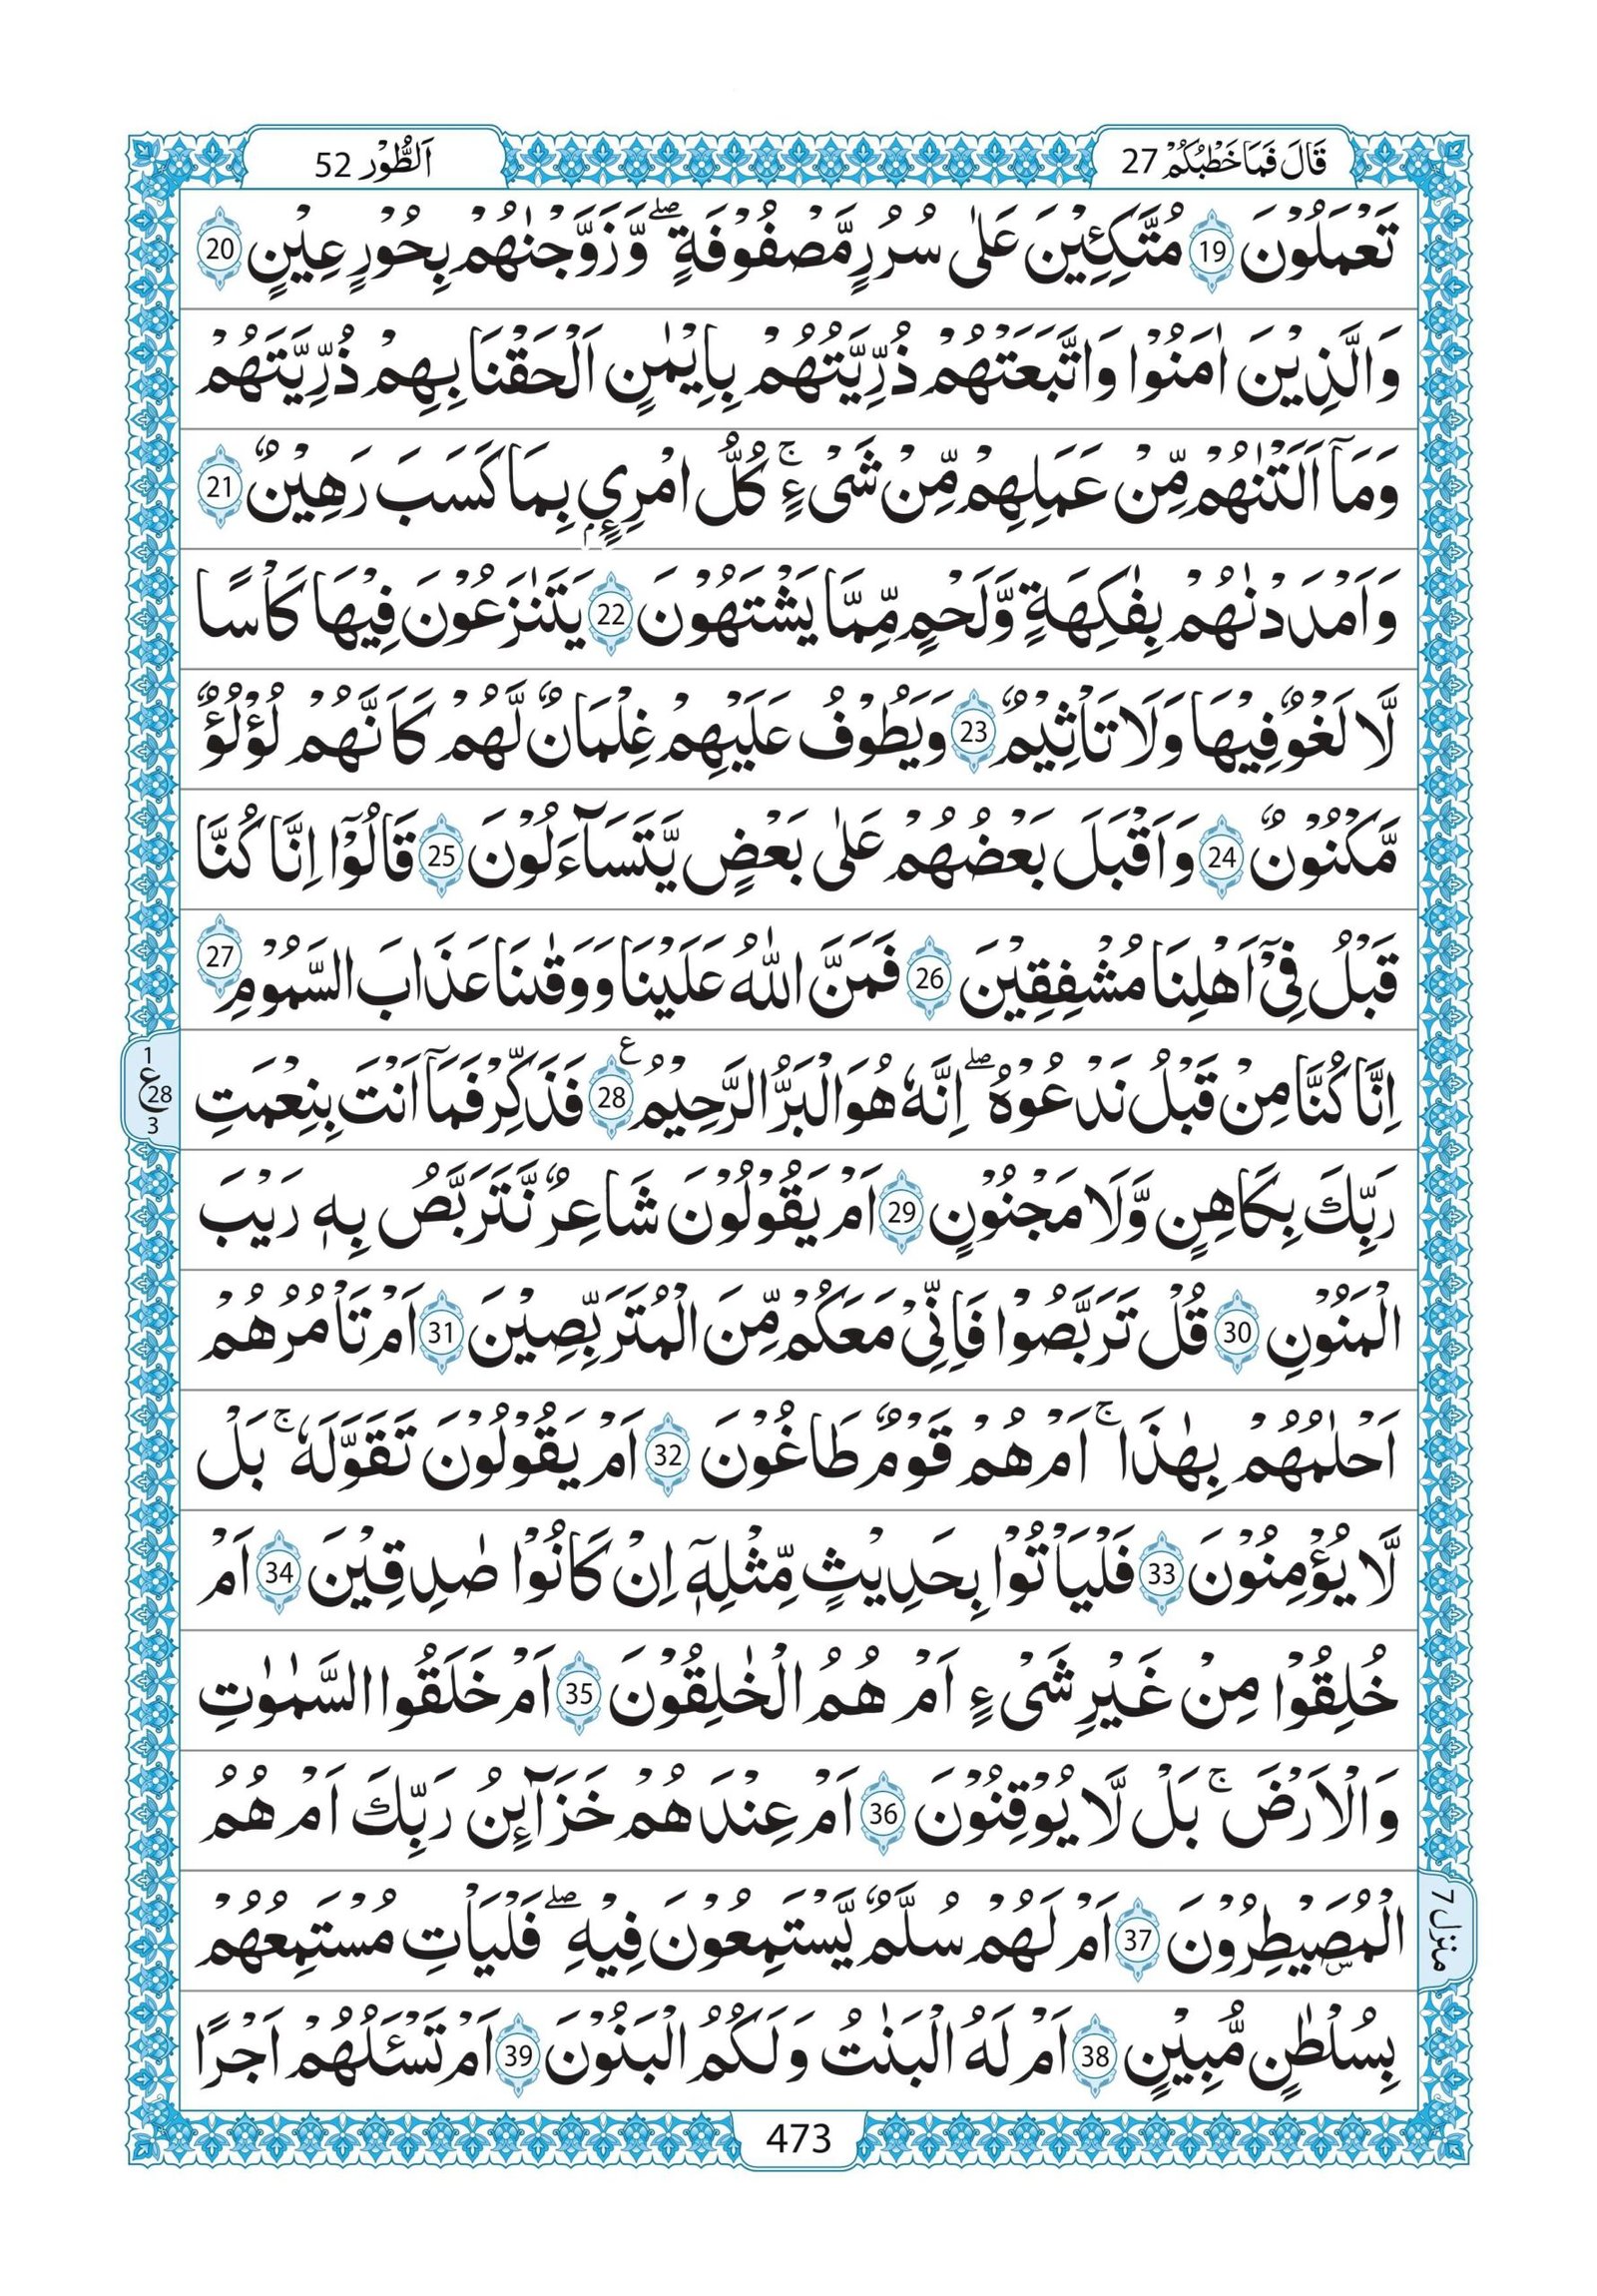 قَالَ فَمَا خَطْبُكُمْ 27
اَلطُّوْر 52
تَعْمَلُوْنَ 19 مُتَّكِـِٕيْنَ عَلٰى سُرُرٍ مَّصْفُوْفَةٍ ۖ وَّزَوَّجْنٰهُمْ بِحُوْرٍ عِيْنٍ 20
وَالَّذِيْنَ اٰمَنُوْا وَاتَّبَعَتْهُمْ ذُرِّيَّتُهُمْ بِاِيْمٰنٍ اَلْحَقْنَا بِهِمْ ذُرِّيَّتَهُمْ
وَمَآ اَلَتْنٰهُمْ مِّنْ عَمَلِهِمْ مِّنْ شَىْءٍ ۚ كُلُّ امْرِئٍۢ بِمَا كَسَبَ رَهِيْنٌ 21
وَاَمْدَدْنٰهُمْ بِفٰكِهَةٍ وَّلَحْمٍ مِّمَّا يَشْتَهُوْنَ 22 يَتَنٰزَعُوْنَ فِيْهَا كَاْسًا
لَّا لَغْوٌ فِيْهَا وَلَا تَاْثِيْمٌ 23 وَيَطُوْفُ عَلَيْهِمْ غِلْمَانٌ لَّهُمْ كَاَنَّهُمْ لُؤْلُؤٌ
مَّكْنُوْنٌ 24 وَاَقْبَلَ بَعْضُهُمْ عَلٰى بَعْضٍ يَّتَسَآءَلُوْنَ 25 قَالُوْٓا اِنَّا كُنَّا
قَبْلُ فِىْٓ اَهْلِنَا مُشْفِقِيْنَ 26 فَمَنَّ اللّٰهُ عَلَيْنَا وَوَقٰىنَا عَذَابَ السَّمُوْمِ 27
اِنَّا كُنَّا مِنْ قَبْلُ نَدْعُوْهُ ۖ اِنَّهٗ هُوَ الْبَرُّ الرَّحِيْمُ ع 28 فَذَكِّرْ فَمَآ اَنْتَ بِنِعْمَتِ
1
ع 28
3
رَبِّكَ بِكَاهِنٍ وَّلَا مَجْنُوْنٍ 29 اَمْ يَقُوْلُوْنَ شَاعِرٌ نَّتَرَبَّصُ بِهٖ رَيْبَ
الْمَنُوْنِ 30 قُلْ تَرَبَّصُوْا فَاِنِّىْ مَعَكُمْ مِّنَ الْمُتَرَبِّصِيْنَ 31 اَمْ تَاْمُرُهُمْ
اَحْلٰمُهُمْ بِهٰذَا ۚ اَمْ هُمْ قَوْمٌ طَاغُوْنَ 32 اَمْ يَقُوْلُوْنَ تَقَوَّلَهٗ ۚ بَلْ
لَّا يُؤْمِنُوْنَ 33 فَلْيَاْتُوْا بِحَدِيْثٍ مِّثْلِهٖٓ اِنْ كَانُوْا صٰدِقِيْنَ 34 اَمْ
خُلِقُوْا مِنْ غَيْرِ شَىْءٍ اَمْ هُمُ الْخٰلِقُوْنَ 35 اَمْ خَلَقُوا السَّمٰوٰتِ
وَالْاَرْضَ ۚ بَلْ لَّا يُوْقِنُوْنَ 36 اَمْ عِنْدَهُمْ خَزَآئِنُ رَبِّكَ اَمْ هُمُ
الْمُصَۜيْطِرُوْنَ 37 اَمْ لَهُمْ سُلَّمٌ يَّسْتَمِعُوْنَ فِيْهِ ۖ فَلْيَاْتِ مُسْتَمِعُهُمْ
منزل 7
بِسُلْطٰنٍ مُّبِيْنٍ 38 اَمْ لَهُ الْبَنٰتُ وَلَكُمُ الْبَنُوْنَ 39 اَمْ تَسْـَٔلُهُمْ اَجْرًا
473